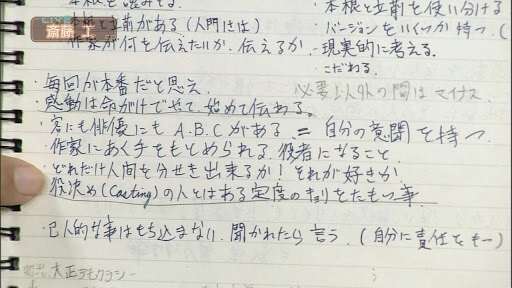 本根を読みとる。
・本根と立前がある(人間には)
作家が何を伝えたいか、伝えるか
・本根と立前を使い分ける
・バージョンをいくつか持つ。(
・現実的に考える。
こだわる。
LIVE
斎藤 工
・毎回が本番だと思え
必要以上外の間はマイナス.
・感動は命がけでやって、始めて伝わる。
・客にも俳優にも A.B.Cがある = 自分の意聞を持つ
・作家にあく手をもとめられる役者になること
・どれだけ人間を分せき出来るか!それが好きか
・役決め(Casting)の人とはある定度のキョリをたもつ事.
・己人的な事はもち込まない. 聞かれたら言う.(自分に責任をもー)
大正デモクラシー